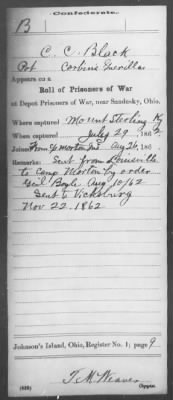 Confederate.
B
C. C. Black
Pvt Corbin's Guerillas
Appears on a
Roll of Prisoners of War
at Depot Prisoners of War, near Sandusky, Ohio.
Where captured Mount Sterling Ky
When captured July 29, 1862
Joined From C Morton Ind Aug 26, 186 .
Remarks: Sent from Louisville
to Camp Morton by order
Genl Boyle Aug 10/62
Sent to Vicksburg
Nov 22. 1862
Johnson's Island, Ohio, Register No. 1; page 9
T. M. Weaver
(639) Copyist.